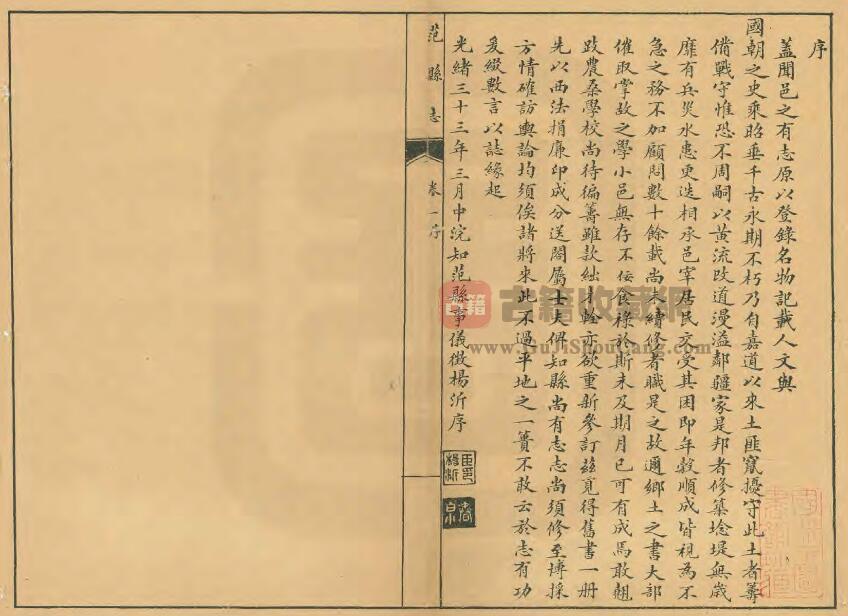 序
蓋聞邑之有志原以登錄名物記載人文與
國朝之史乘昭垂千古永期不朽乃自嘉道以來土匪竄擾守此土者籌
備戰守惟恐不周嗣以黃流改道漫溢鄰疆家是邦者修築埝堤無歲
靡有兵災水患更迭相承邑宰居民交受其困即年穀順成皆視為不
急之務不加顧問數十餘載尚未續修者職是之故邇鄉土之書大部
催取掌故之學小邑無存不佞食祿於斯未及期月已可有成焉敢翹
跂農桑學校尚待徧籌雖款絀 幹亦欲重新參訂茲覓得舊書一册
先以西法捐廉印成分送闔屬士夫俾知縣尚有志志尚須修至博採
方情確訪輿論均須俟諸將來此不過平地之一簣不敢云於志有功
爰綴數言以誌緣起
光緒三十三年三月中浣知范縣事儀徵楊沂序
范縣志
卷一序
古籍
古籍收藏網
www.GuJiShouCang.com